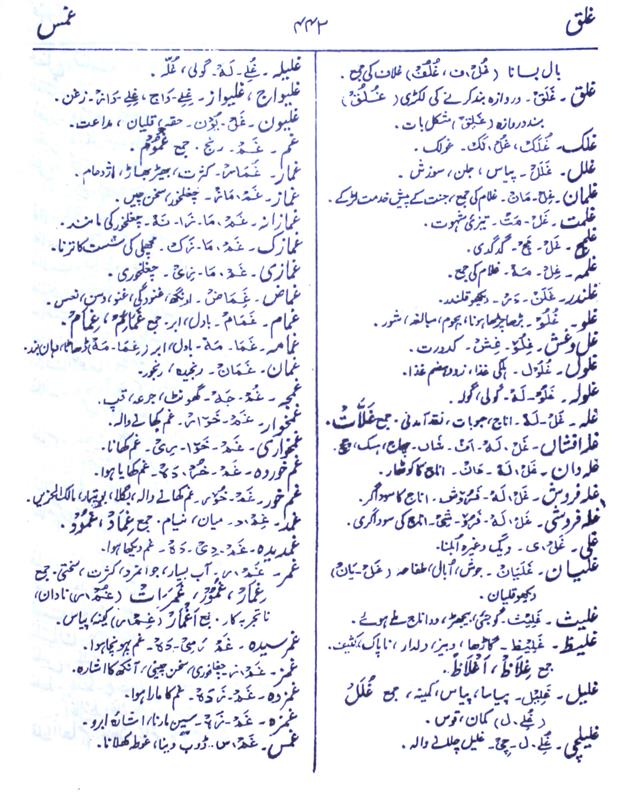 غلق
۴۴۲
غمس
بال بسانا (غُل۔ف، غُلُف) غلاف کی جمع۔
غلق۔ غَلَق۔ دروازہ بند کرنے کی لکڑی (غُلُق)
بند دروازہ (غَلِق) مشکل بات۔
غلک۔ غُلَک، غُل، لَک۔ غولک۔
غلل۔ غَلَل۔ پیاس، جلن، سوزش۔
غلمان۔ غِل۔مَان۔ غلام کی جمع، جنت کے پیش خدمت لڑکے۔
غلمت۔ غُل۔مَت۔ تیزی شہوت۔
غلمج۔ غَل۔مَج۔ گدگدی۔
غلمہ۔ غِل۔مَہ۔ غلام کی جمع۔
غلندر۔ غَلَن۔دَر۔ دیکھو قلندر۔
غلو۔ غُلُو۔ بڑھا چڑھا ہونا، ہجوم، مبالغہ، شور۔
غل وغش۔ غِلّو۔غِش۔ کدورت۔
غلول۔ غَلُوْل۔ ہلکی غذا، زود ہضم غذا۔
غلولہ۔ غَلُوْ۔لَہ۔ گولی، گولہ۔
غلہ۔ غَل۔لَہ۔ اناج، حبوبات، نقد آمدنی۔ جمع غَلَّات۔
غلہ افشاں۔ غَل، لَہ۔ اَف۔ شَاں۔ چھاج، سبک، ہیچ۔
غلہ دان۔ غَل، لَہ۔ دَان۔ اناج کا کوٹھار۔
غلہ فروش۔ غَل، لَہ۔ فَرُوْش۔ اناج کا سوداگر۔
غلہ فروشی۔ غَل، لَہ۔ فَرُوْ۔شِی۔ اناج کی سوداگری۔
غلی۔ غَل، ی۔ دیگ وغیرہ اُبلنا۔
غلیان۔ غَلَیَان۔ جوش، اُبال، طفاحہ (غَل۔یَان)
دیکھو قلیان۔
غلیث۔ غَلِیث۔ گوجئی، بیجھڑ، دو اناج ملے ہوئے۔
غلیظ۔ غَلِیظ۔ گاڑھا، دبیز، دلدار، ناپاک، کثیف۔
جمع غِلَاظ، اَغْلَاظ۔
غلیل۔ غَلِیل۔ پیاسا، پیاس، کینہ، جمع غُلَل
(غُلے، ل) کمان، قوس۔
غلیلچی۔ غُلے۔ل۔چِی۔ غلیل چلانے والہ۔
غلیلہ۔ غُلے۔لَہ۔ گولی، غُلّہ۔
غلیواج، غلیواز۔ غِلے۔وَاج، غِلے۔وَاز۔ زغن۔
غلیون۔ غَل۔یُوْن۔ حقہ، قلیان، مداعت۔
غم۔ غَم۔ رنج۔ جمع غُمُوْم۔
غمار۔ غَمَار۔ کثرت، بھیڑ بھاڑ، اژدحام۔
غماز۔ غَم، مَاز۔ چغلخور، سخن چیں۔
غمازانہ۔ غَم، مَا۔زَا۔نَہ۔ چغلخور کی مانند۔
غمازک۔ غَم، مَا۔زَک۔ مچھلی کی شست کا تزنا۔
غمازی۔ غَم، مَا۔زِی۔ چغلخوری۔
غماض۔ غِمَاض۔ اونگھ، غنودگی، غنودن، نعس۔
غمام۔ غَمَام۔ بادل، ابر۔ جمع غَمَائِم، غِمَام۔
غمامہ۔ غَمَا۔مَہ۔ بادل، ابر (غِمَا۔مَہ) ڈھاٹا، دہان بند۔
غمان۔ غَمَان۔ رنجیدہ، رنجور۔
غمجہ۔ غُم۔جَہ۔ گھونٹ، جرعہ، قپ۔
غمخوار۔ غَم۔خَوَار۔ غم کھانے والہ۔
غمخواری۔ غَم۔خَوَا۔رِی۔ غم کھانا۔
غم خوردہ۔ غَم۔خُر۔دَہ۔ غم کھایا ہوا۔
غم خور۔ غَم۔خُوْر۔ غم کھانے والہ، بگلا، بوتیمار، مالک الحزیں۔
غمد۔ غِم، د۔ میان، نیام۔ جمع غِمَاد، غُمُوْد۔
غمدیدہ۔ غَم۔دِی۔دَہ۔ غم دیکھا ہوا۔
غمر۔ غَم، ر۔ آب بسیار، جوانمرد، کثرت، سختی۔ جمع
غِمَار، غُمُوْر، غَمَرَات (غُم، ر) نادان،
ناتجربہ کار۔ جمع اَغْمَار (غِم، ر) کینہ، پیاس۔
غمرسیدہ۔ غَم۔رَسِی۔دَہ۔ غم پہونچا ہوا۔
غمز۔ غَم، ز۔ چغلخوری، سخن چینی، آنکھ کا اشارہ۔
غمزدہ۔ غَم۔زَدَہ۔ غم کا مارا ہوا۔
غمزہ۔ غَم۔زَہ۔ سین مارنا، اشارہ ابرو۔
غمس۔ غَم، س۔ ڈوب دینا، غوطہ کھلانا۔